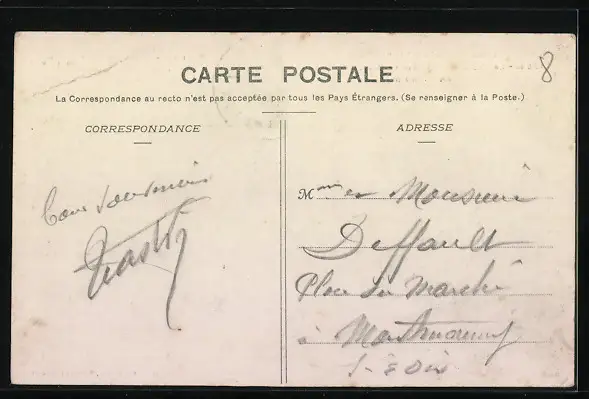 CARTE POSTALE
La Correspondance au recto n'est pas acceptée par tous les Pays Étrangers. (Se renseigner à la Poste.)
CORRESPONDANCE
ADRESSE
8
Bons souvenirs
M me et Monsieur
Deffault
Place du Marché
à Montmorency
S-&-Oise